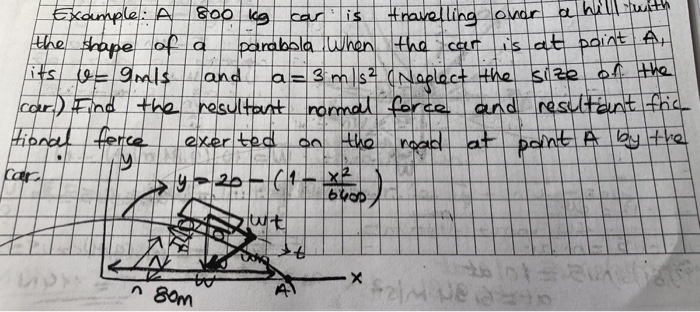 Example: A 800 kg car is travelling over a hill with
the shape of a parabola. When the car is at point A,
its v = 9m/s and a = 3m/s² (Neglect the size of the
car.) Find the resultant normal force and resultant fric
tional force exerted on the road at point A by the
car.
y
y = 20 - (1 - x²/6400)
Wt
t
N
W
A
x
80m